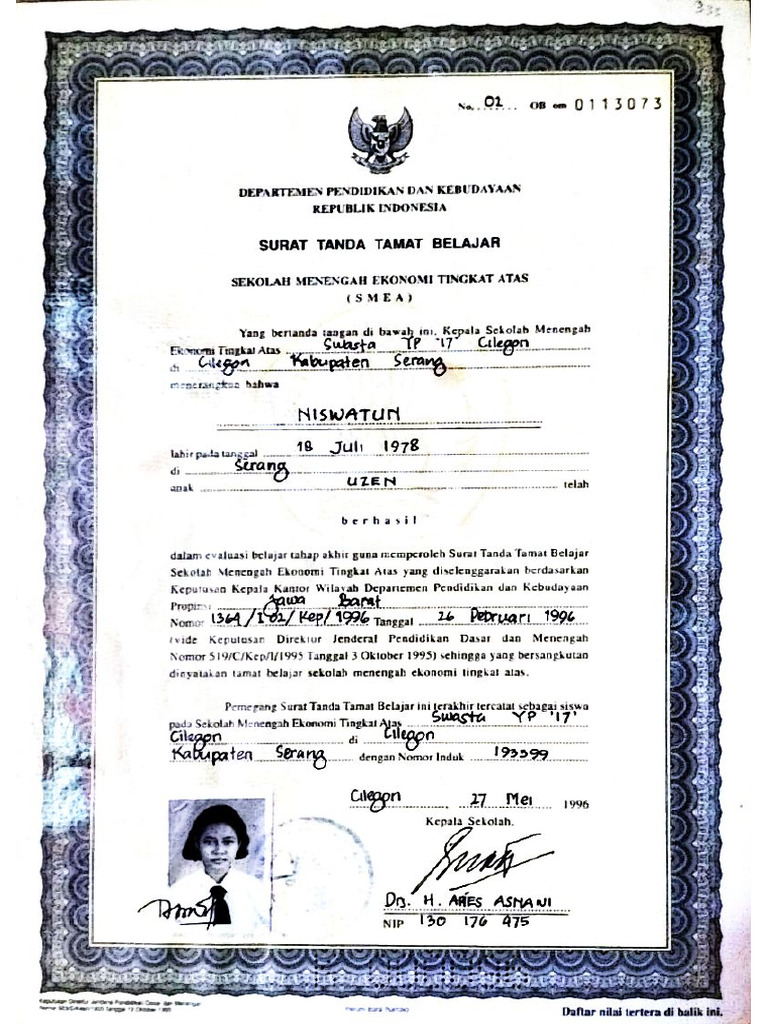 333
No. 02 OB om 0113073
DEPARTEMEN PENDIDIKAN DAN KEBUDAYAAN
REPUBLIK INDONESIA
SURAT TANDA TAMAT BELAJAR
SEKOLAH MENENGAH EKONOMI TINGKAT ATAS
( S M E A )
Yang bertanda tangan di bawah ini, Kepala Sekolah Menengah
Ekonomi Tingkat Atas Swasta YP '17 Cilegon
di Cilegon Kabupaten Serang
menerangkan bahwa
NISWATUN
lahir pada tanggal 18 Juli 1978
di Serang
anak UZEN telah
b e r h a s i l
dalam evaluasi belajar tahap akhir guna memperoleh Surat Tanda Tamat Belajar
Sekolah Menengah Ekonomi Tingkat Atas yang diselenggarakan berdasarkan
Keputusan Kepala Kantor Wilayah Departemen Pendidikan dan Kebudayaan
Propinsi Jawa Barat
Nomor 1364/I02/Kep/1996 Tanggal 26 Pebruari 1996
(vide Keputusan Direktur Jenderal Pendidikan Dasar dan Menengah
Nomor 519/C/Kep/I/1995 Tanggal 3 Oktober 1995) sehingga yang bersangkutan
dinyatakan tamat belajar sekolah menengah ekonomi tingkat atas.
Pemegang Surat Tanda Tamat Belajar ini terakhir tercatat sebagai siswa
pada Sekolah Menengah Ekonomi Tingkat Atas Swasta YP '17'
Cilegon di Cilegon
Kabupaten Serang dengan Nomor Induk 193599
Cilegon, 27 Mei 1996
Kepala Sekolah,
Drs. H. ARIES ASNANI
NIP 130 176 475
Keputusan Direktur Jenderal Pendidikan Dasar dan Menengah
Daftar nilai tertera di balik ini.